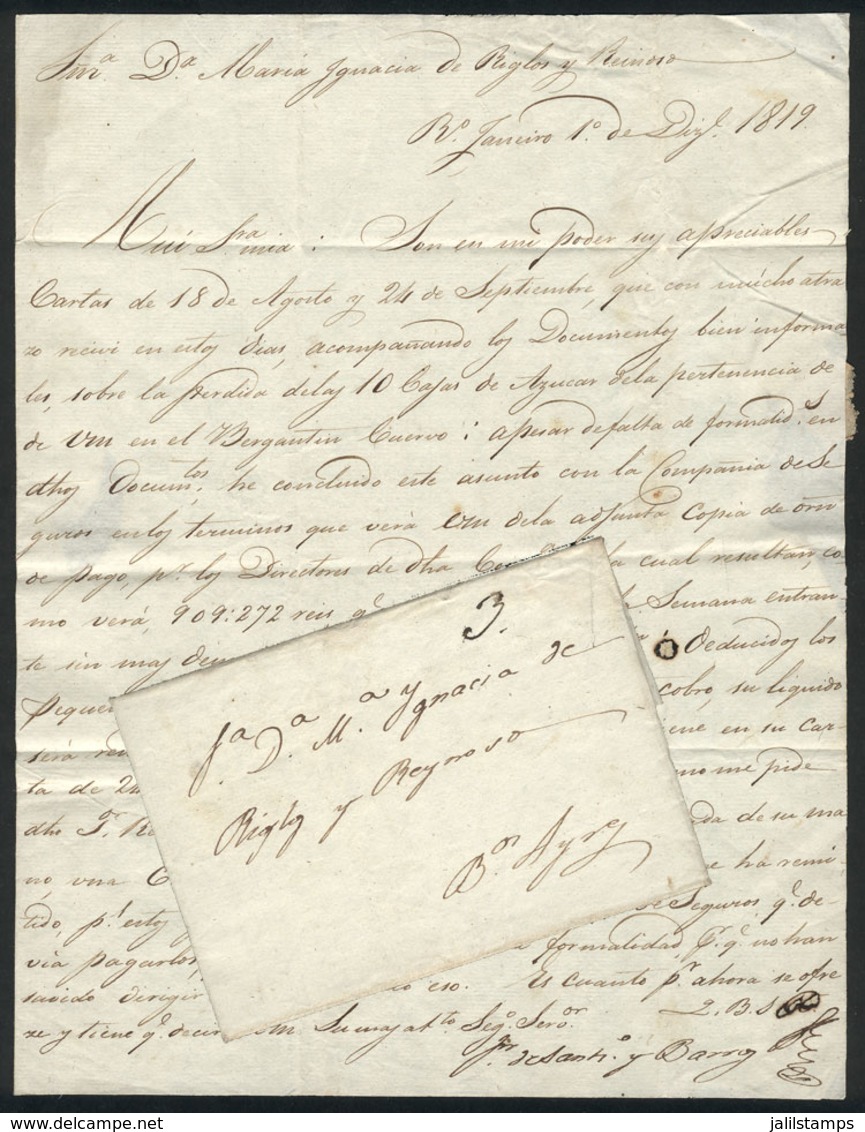 Sra. Da. Maria Ygnacia de Riglos y Reinoso
Ro. Janeiro 1o. de Dize. 1819.
Mui Sra. mia: Son en mi poder sus apreciables
Cartas de 18 de Agosto y 24 de Septiembre, que con múcho atra
zo recivi en estos dias, acompañando los Documentos bien informa
les, sobre la perdida delas 10 Cajas de Azucar dela pertenencia de
de Vm en el Bergantin Cuervo: apesar defalta de formalids. en
dhos Documtos. he concluido este asunto con la Compañia de Se
guros enlos terminos que verá Vm dela adjunta Copia de orn
de pago, pr. los Directores de dha Co a cual resultan, co-
mo verá, 909:272 reis q. Semana entran-
te sin mas Deducidos los
peque cobro, su liquido
será re iene en su car-
ta de 24 mo me pide
dho da de su ma
no, una e ha remi-
tido, pr. estos Seguros, q. de-
via pagarlos, formalidad pr. q. no han
savido dirigir eso. Es cuanto pr. ahora se ofre
ze y tiene q. decir Su mas atto. Sego. Seror. Q.B.S.
de Santo. y Barros
3.
Sa. Da. Ma. Ygnacia de
Riglos y Reynoso
Bos. Ayres
jalilstamps